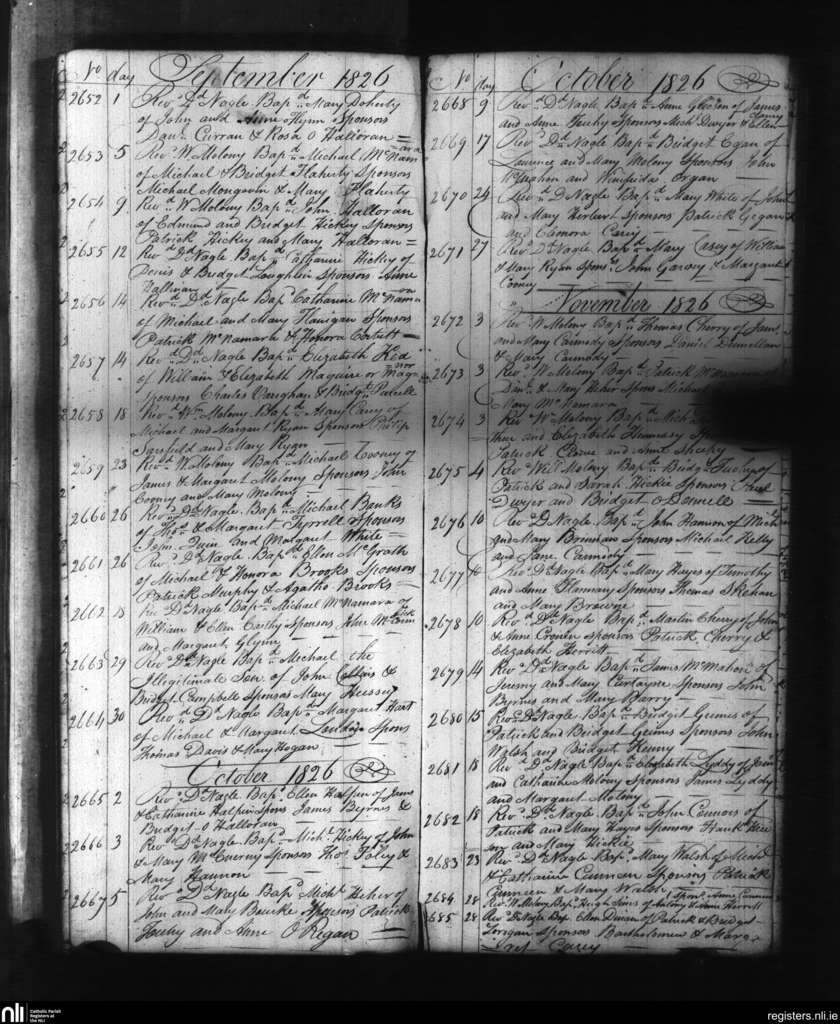 No day September 1826
2652 1 Revd. Dd. Nagle Bapd. Mary Doherty
of John and Anne Flynn Sponsors
Danl. Curran & Rosa O Halloran =
2653 5 Revd. W Molony Bapd. Michael McNam=ara
of Michael & Bridget Flaherty Sponsors
Michael & Mary Flaherty
2654 9 Revd. W Molony Bapd. John Halloran
of Edmund and Bridget Hickey Sponsors
Patrick Hickey and Mary Halloran =
2655 12 Revd. Dd. Nagle Bapd. Catharine Hickey of
Denis & Bridget Loughlin Sponsors Anne
Halloran —
2656 14 Revd. Dd. Nagle Bapd. Catharine McNama
of Michael and Mary Flanigan Sponsors
Patrick McNamara & Honora Corbett =
2657 14 Revd. Dd. Nagle Bapd. Elizabeth
of William & Elizabeth Maguire or
Sponsors Charles Vaughan & Bridgt. Purcell
2658 18 Revd. Wm. Molony Bapd. Mary Carey of
Michael and Margaret Ryan Sponsors Philip
Sarsfield and Mary Ryan —
2659 23 Revd. W Molony Bapd. Michael Cooney of
James & Margaret Molony Sponsors John
Cooney and Mary Molony —
2660 26 Revd. Dd. Nagle Bapd. Michael Banks
of Thos. & Margaret Tyrrell Sponsors
John Quin and Margaret White =
2661 26 Revd. Dd. Nagle Bapd. Ellen McGrath
of Michael & Honora Brooks Sponsors
Patrick Murphy & Agatha Brooks =
2662 Revd. Dd. Nagle Bapd. Michael McNamara of
William & Ellen Sponsors John
and Margaret Glynn
2663 29 Revd. Dd. Nagle Bapd. Michael the
Illegitimate Son of John Collins &
Bridget Campbell Sponsors Mary Hussey
2664 30 Revd. Dd. Nagle Bapd. Margaret Hart
of Michael & Margaret Spons
Thomas Davis & Mary Hogan
October 1826
2665 2 Revd. Dd. Nagle Bapd. Ellen Halpin of James
& Catharine Halpin Spons James Byrnes &
Bridget O Halloran —
2666 3 Revd. Dd. Nagle Bapd. Michl. Hickey of John
& Mary Sponsors Thos. Foley &
Mary Hannon —
2667 5 Revd. Dd. Nagle Bapd. Michl. Heher of
John and Mary Bourke Sponsors Patrick
Feehy and Anne O Regan —
No day October 1826
2668 9 Revd. Dd. Nagle Bapd. Anne Gleeson of James
and Anne Feehy Sponsors Michl. Dwyer & Ellen
2669 17 Revd. Dd. Nagle Bapd. Bridget Egan of
Laurence and Mary Molony Sponsors John
and Winifrida —
2670 24 Revd. D Nagle Bapd. Mary White of John
and Mary Herbert Sponsors Patrick Gegan
and Eleonora Carey —
2671 27 Revd. Dd. Nagle Bapd. Mary Casey of William
& Mary Ryan Spons. John Garvey & Margaret
Cooney —
November 1826
2672 3 Revd. W Molony Bapd. Thomas Cherry of James
and Mary Carmody Sponsors Daniel
& Mary Carmody —
2673 3 Revd. W Molony Bapd. Patrick McNamara of
Danl. & Mary Heher Spons Michael
Mary McNamara —
2674 3 Revd. W Molony Bapd.
and Elizabeth Hennessy
Patrick Clune and Anne Sheehy
2675 4 Revd. Wm. Molony Bapd. Bridgt. Tuohy of
Patrick and Sarah Hickie Sponsors
Dwyer and Bridget O Donnell —
2676 10 Revd. Dd. Nagle Bapd. John Hannon of Michl.
and Mary Brinnan Sponsors Michael Kelly
and Jane Carmody —
2677 10 Revd. Dd. Nagle Bapd. Mary Hayes of Timothy
and Anne Flannery Sponsors Thomas
and Mary Browne
2678 10 Revd. Dd. Nagle Bapd. Martin Cherry of John
& Anne Sponsors Patrick Cherry &
Elizabeth Herritt —
2679 14 Revd. Dd. Nagle Bapd. James McMahon of
Jeremy and Mary Sponsors John
Byrnes and Mary Barry —
2680 15 Revd. Dd. Nagle Bapd. Bridget of
Patrick and Bridget Sponsors John
Walsh and Bridget Kenny —
2681 18 Revd. Dd. Nagle Bapd. Elizabeth Lyddy of James
and Catharine Molony Sponsors James Lyddy
and Margaret Molony —
2682 18 Revd. Dd. Nagle Bapd. John Connors of
Patrick and Mary Hayes Sponsors
and Mary Hickie —
2683 23 Revd. Dd. Nagle Bapd. Mary Walsh of
& Catharine Cunneen Sponsors Patrick
Cunneen & Mary Walsh
2684 28 Revd. W Molony Bapd. Hugh of Antony & Anne Sponrs. Anne
685 28 Revd. Dd. Nagle Bap. Ellen of Patrick & Bridget
Sponsors Bartholomew & Marga
ret Carey —
nli Catholic Parish
Registers at
the NLI
registers.nli.ie